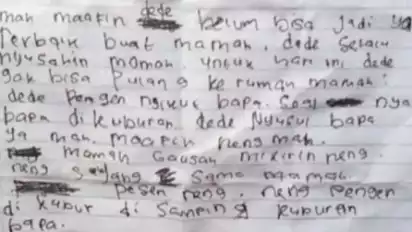 mah maafin dede belum bisa jadi ya
Terbaik buat mamah. dede selalu
nyusahin mamah. untuk hari ini dede
gak bisa pulang ke rumah mamah.
dede pengen ngikut bapa. nya
bapa di kuburan dede nyusul bapa
ya mah. maapin neng mah.
mamah Gausah mikirin neng.
neng sayang sama mamah
pesen neng. neng pengen
di kubur di samping kuburan
bapa.